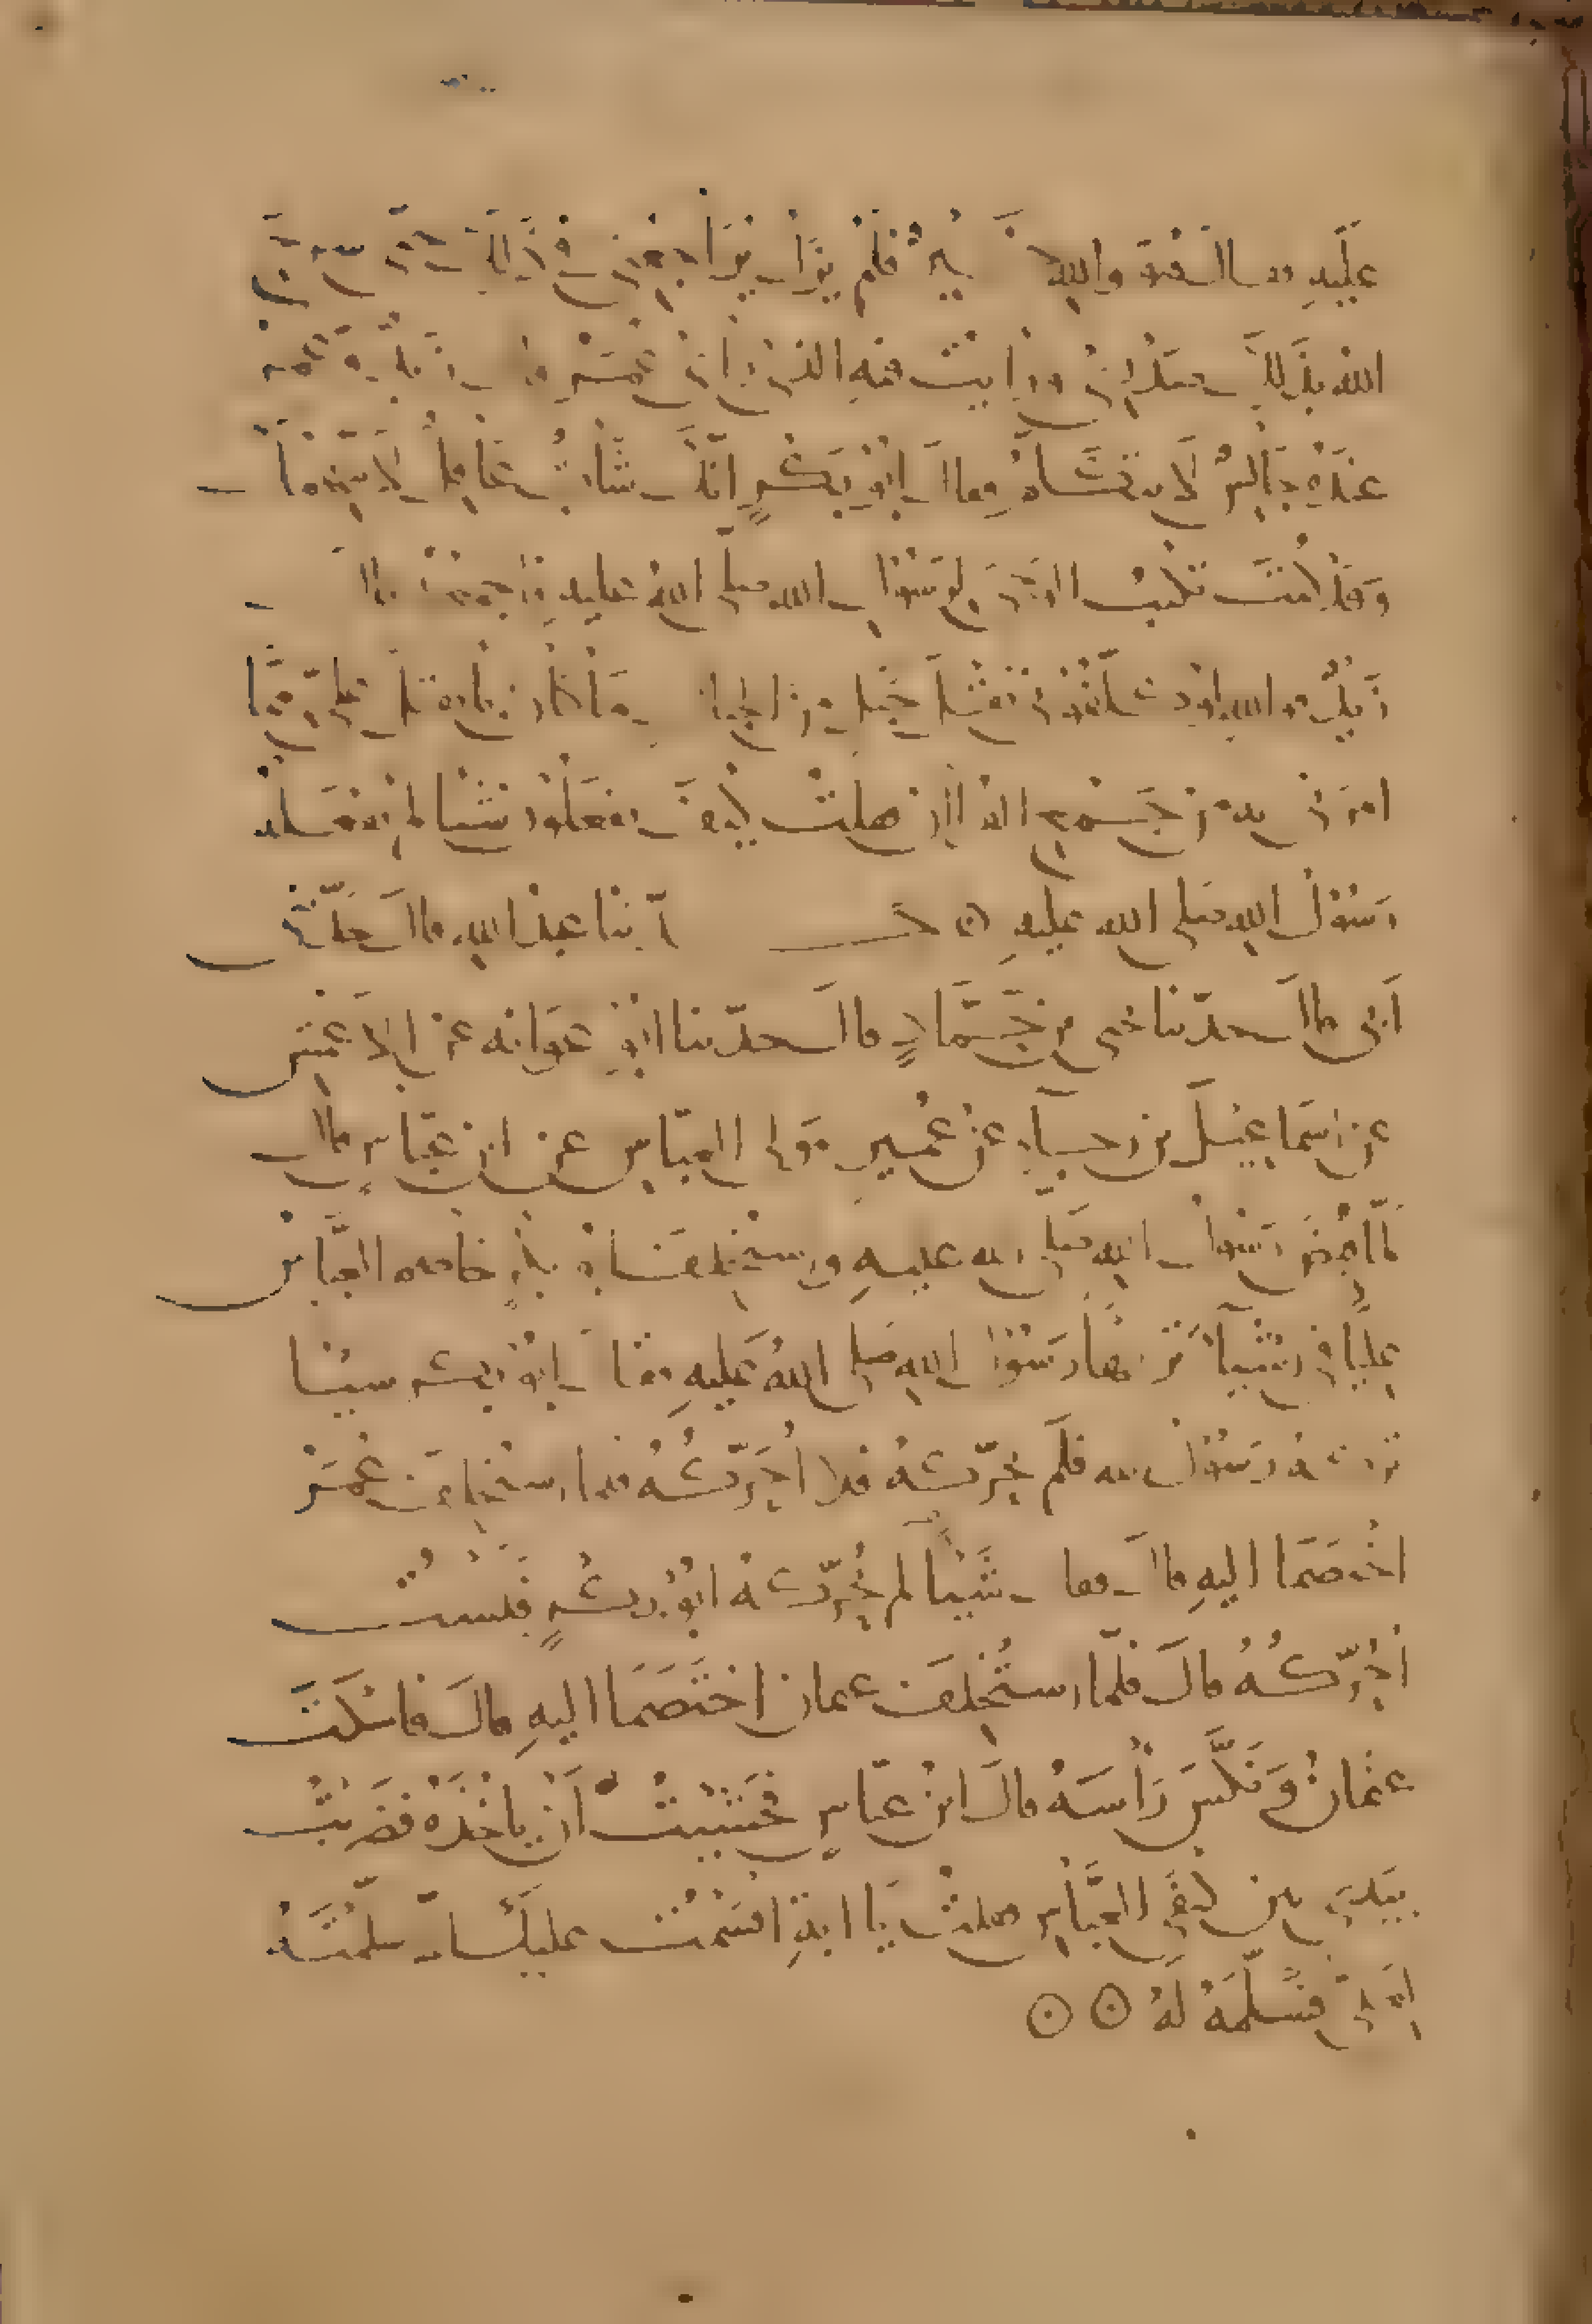 عليه فقال هو والله خير فلم يزل يراجعني في ذلك حتى شرح
الله بذلك صدري ورأيت فيه الذي رأى عمر قال زيد وعمر
عنده جالس لا يتكلم فقال أبو بكر إنك شاب عاقل لا نتهمك
وقد كنت تكتب الوحي لرسول الله صلى الله عليه فاجمعه قال
زيد فوالله لو كلفوني نقل جبل من الجبال ما كان بأثقل علي مما
أمرني به من جمع القرآن فقلت كيف تفعلون شيئا لم يفعله
رسول الله صلى الله عليه ۞ حدثنا عبد الله قال حدثني
أبي قال حدثنا يحيى بن حماد قال حدثنا أبو عوانه عن الأعمش
عن اسماعيل بن رجاء عن عمير مولى العباس عن ابن عباس قال
لما قبض رسول الله صلى الله عليه واستخلف أبو بكر خاصم العباس
عليا في أشياء تركها رسول الله صلى الله عليه فقال أبو بكر شيئا
تركه رسول الله فلم يحركه فلا أحركه فلما استخلف عمر
اختصما اليه قال فقال شيئا لم يحركه أبو بكر فلست
أحركه قال فلما استخلف عثمان اختصما اليه قال فاسكت
عثمان ونكس رأسه قال ابن عباس فخشيت أن يأخذه فضربت
بيدي بين كتفي العباس فقلت يا ابة أقسمت عليك الا سلمته
لعلي فسلمه له ۞ ۞